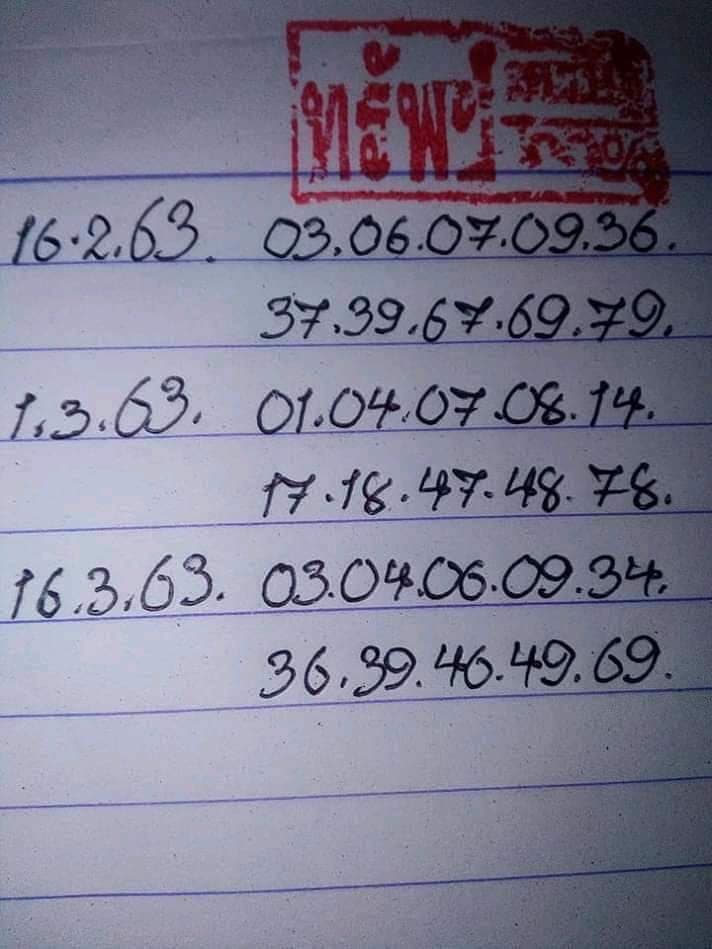 16.2.63. 03.06.07.09.36.
37.39.67.69.79.
1.3.63. 01.04.07.08.14.
17.18.47.48.78.
16.3.63. 03.04.06.09.34.
36.39.46.49.69.